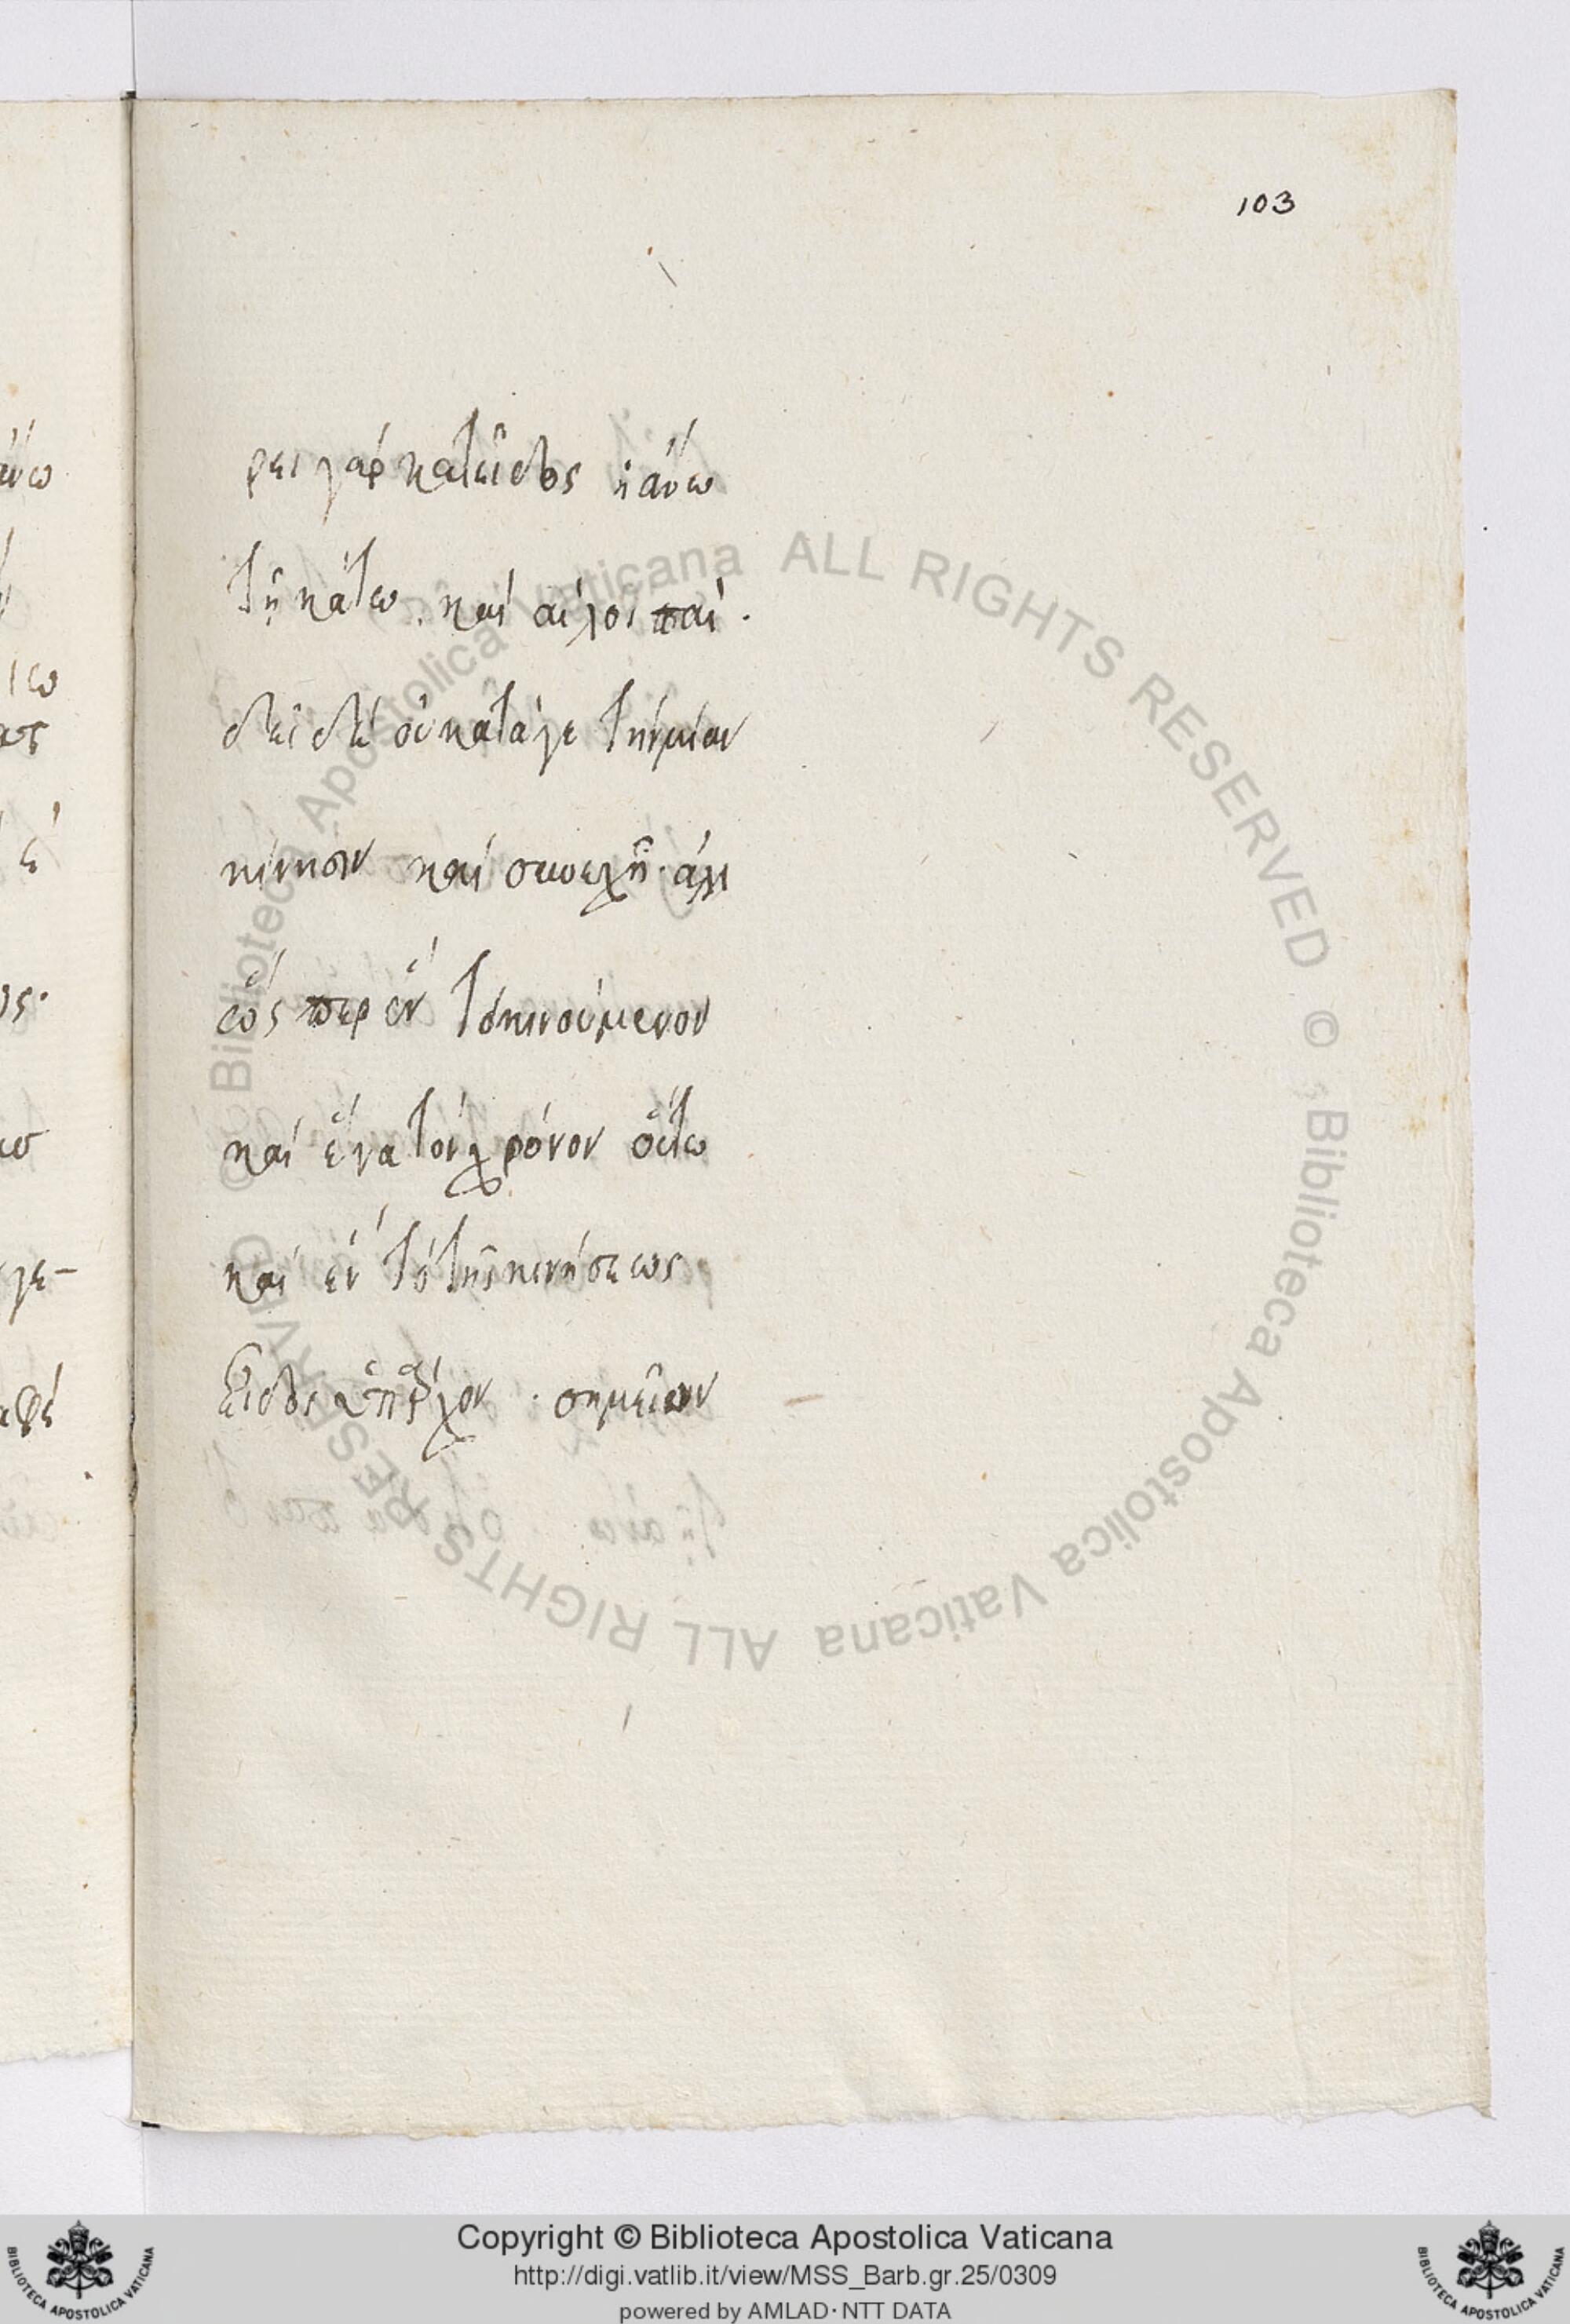 103
ρει γὰρ κατ εἶδος ἡ ἄνω
τῇ κάτω. καὶ αἱ λοιπαί.
δεῖ δὲ οὐ κατά γε τὴν μίαν
κίνησιν καὶ συνεχῆ. ἀλλ
ὥς περ ἓν τὸ κινούμενον
καὶ ἕνα τὸν χρόνον οὕτω
καὶ ἓν τὸ τῆς κινήσεως
εἶδος ὑπάρχον. σημεῖον
© Biblioteca Apostolica Vaticana ALL RIGHTS RESERVED © Biblioteca Apostolica Vaticana ALL RIGHTS RESERVED
Copyright © Biblioteca Apostolica Vaticana
http://digi.vatlib.it/view/MSS_Barb.gr.25/0309
powered by AMLAD·NTT DATA
BIBLIOTECA APOSTOLICA VATICANA
BIBLIOTECA APOSTOLICA VATICANA